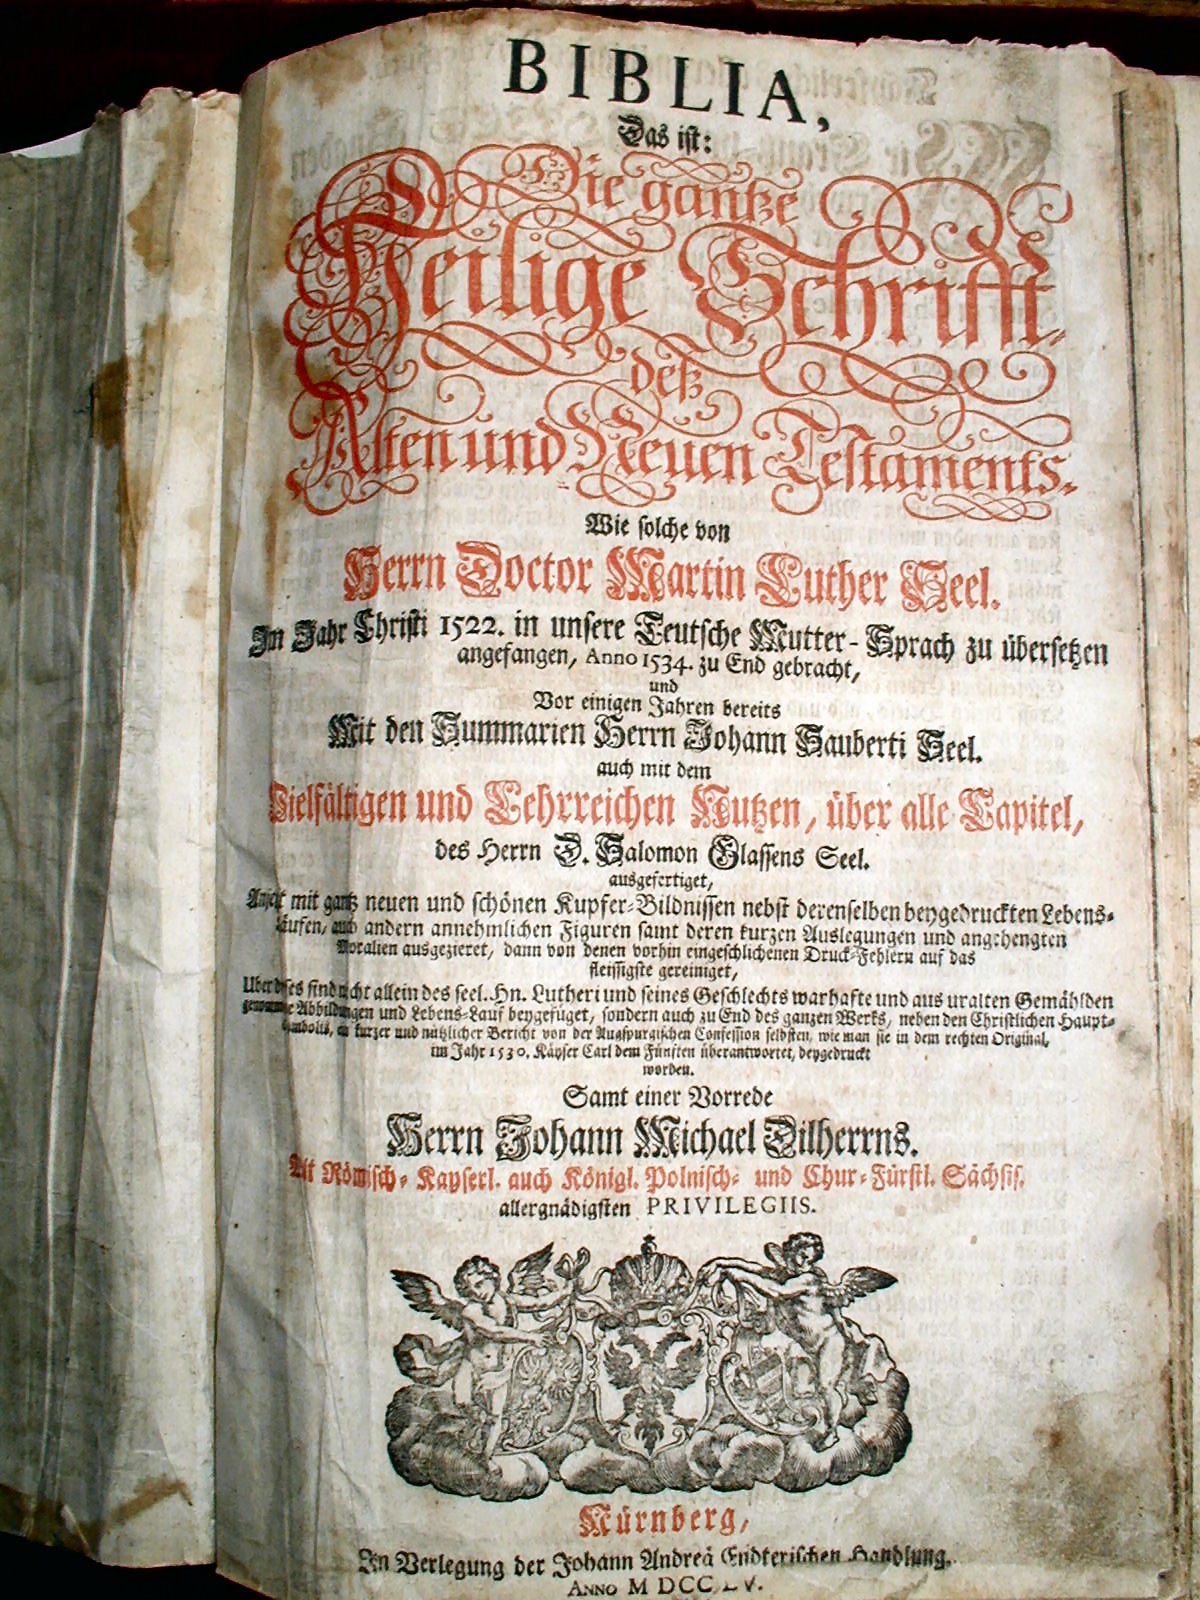 BIBLIA,
Das ist:
Die gantze
Heilige Schrifft
deß
Alten und Neuen Testaments.
Wie solche von
Herrn Doctor Martin Luther Seel.
Im Jahr Christi 1522. in unsere Teutsche Mutter-Sprach zu übersetzen
angefangen, Anno 1534. zu End gebracht,
und
Vor einigen Jahren bereits
Mit den Summarien Herrn Johann Sauberti Seel.
auch mit dem
Vielfältigen und Lehrreichen Nutzen, über alle Capitel,
des Herrn D. Salomon Glassens Seel.
ausgefertiget,
Anjetzt mit gantz neuen und schönen Kupfer-Bildnissen nebst derenselben beygedruckten Lebens-
Läufen, auch andern annehmlichen Figuren samt deren kurzen Auslegungen und angehengten
Moralien ausgezieret, dann von denen vorhin eingeschlichenen Druck-Fehlern auf das
fleissigste gereiniget,
Uber dises sind nicht allein des seel. Hn. Lutheri und seines Geschlechts warhafte und aus uralten Gemählden
genommene Abbildungen und Lebens-Lauf beygefüget, sondern auch zu End des ganzen Werks, neben den Christlichen Haupt-
Symbolis, ein kurzer und nützlicher Bericht von der Augspurgischen Confession selbsten, wie man sie in dem rechten Original,
im Jahr 1530. Käyser Carl dem Fünften überantwortet, beygedruckt
worden.
Samt einer Vorrede
Herrn Johann Michael Dilherrns.
Mit Römisch- Kayserl. auch Königl. Polnisch- und Chur-Fürstl. Sächsis.
allergnädigsten PRIVILEGIIS.
Nürnberg,
In Verlegung der Johann Andreä Endterischen Handlung.
ANNO M DCC